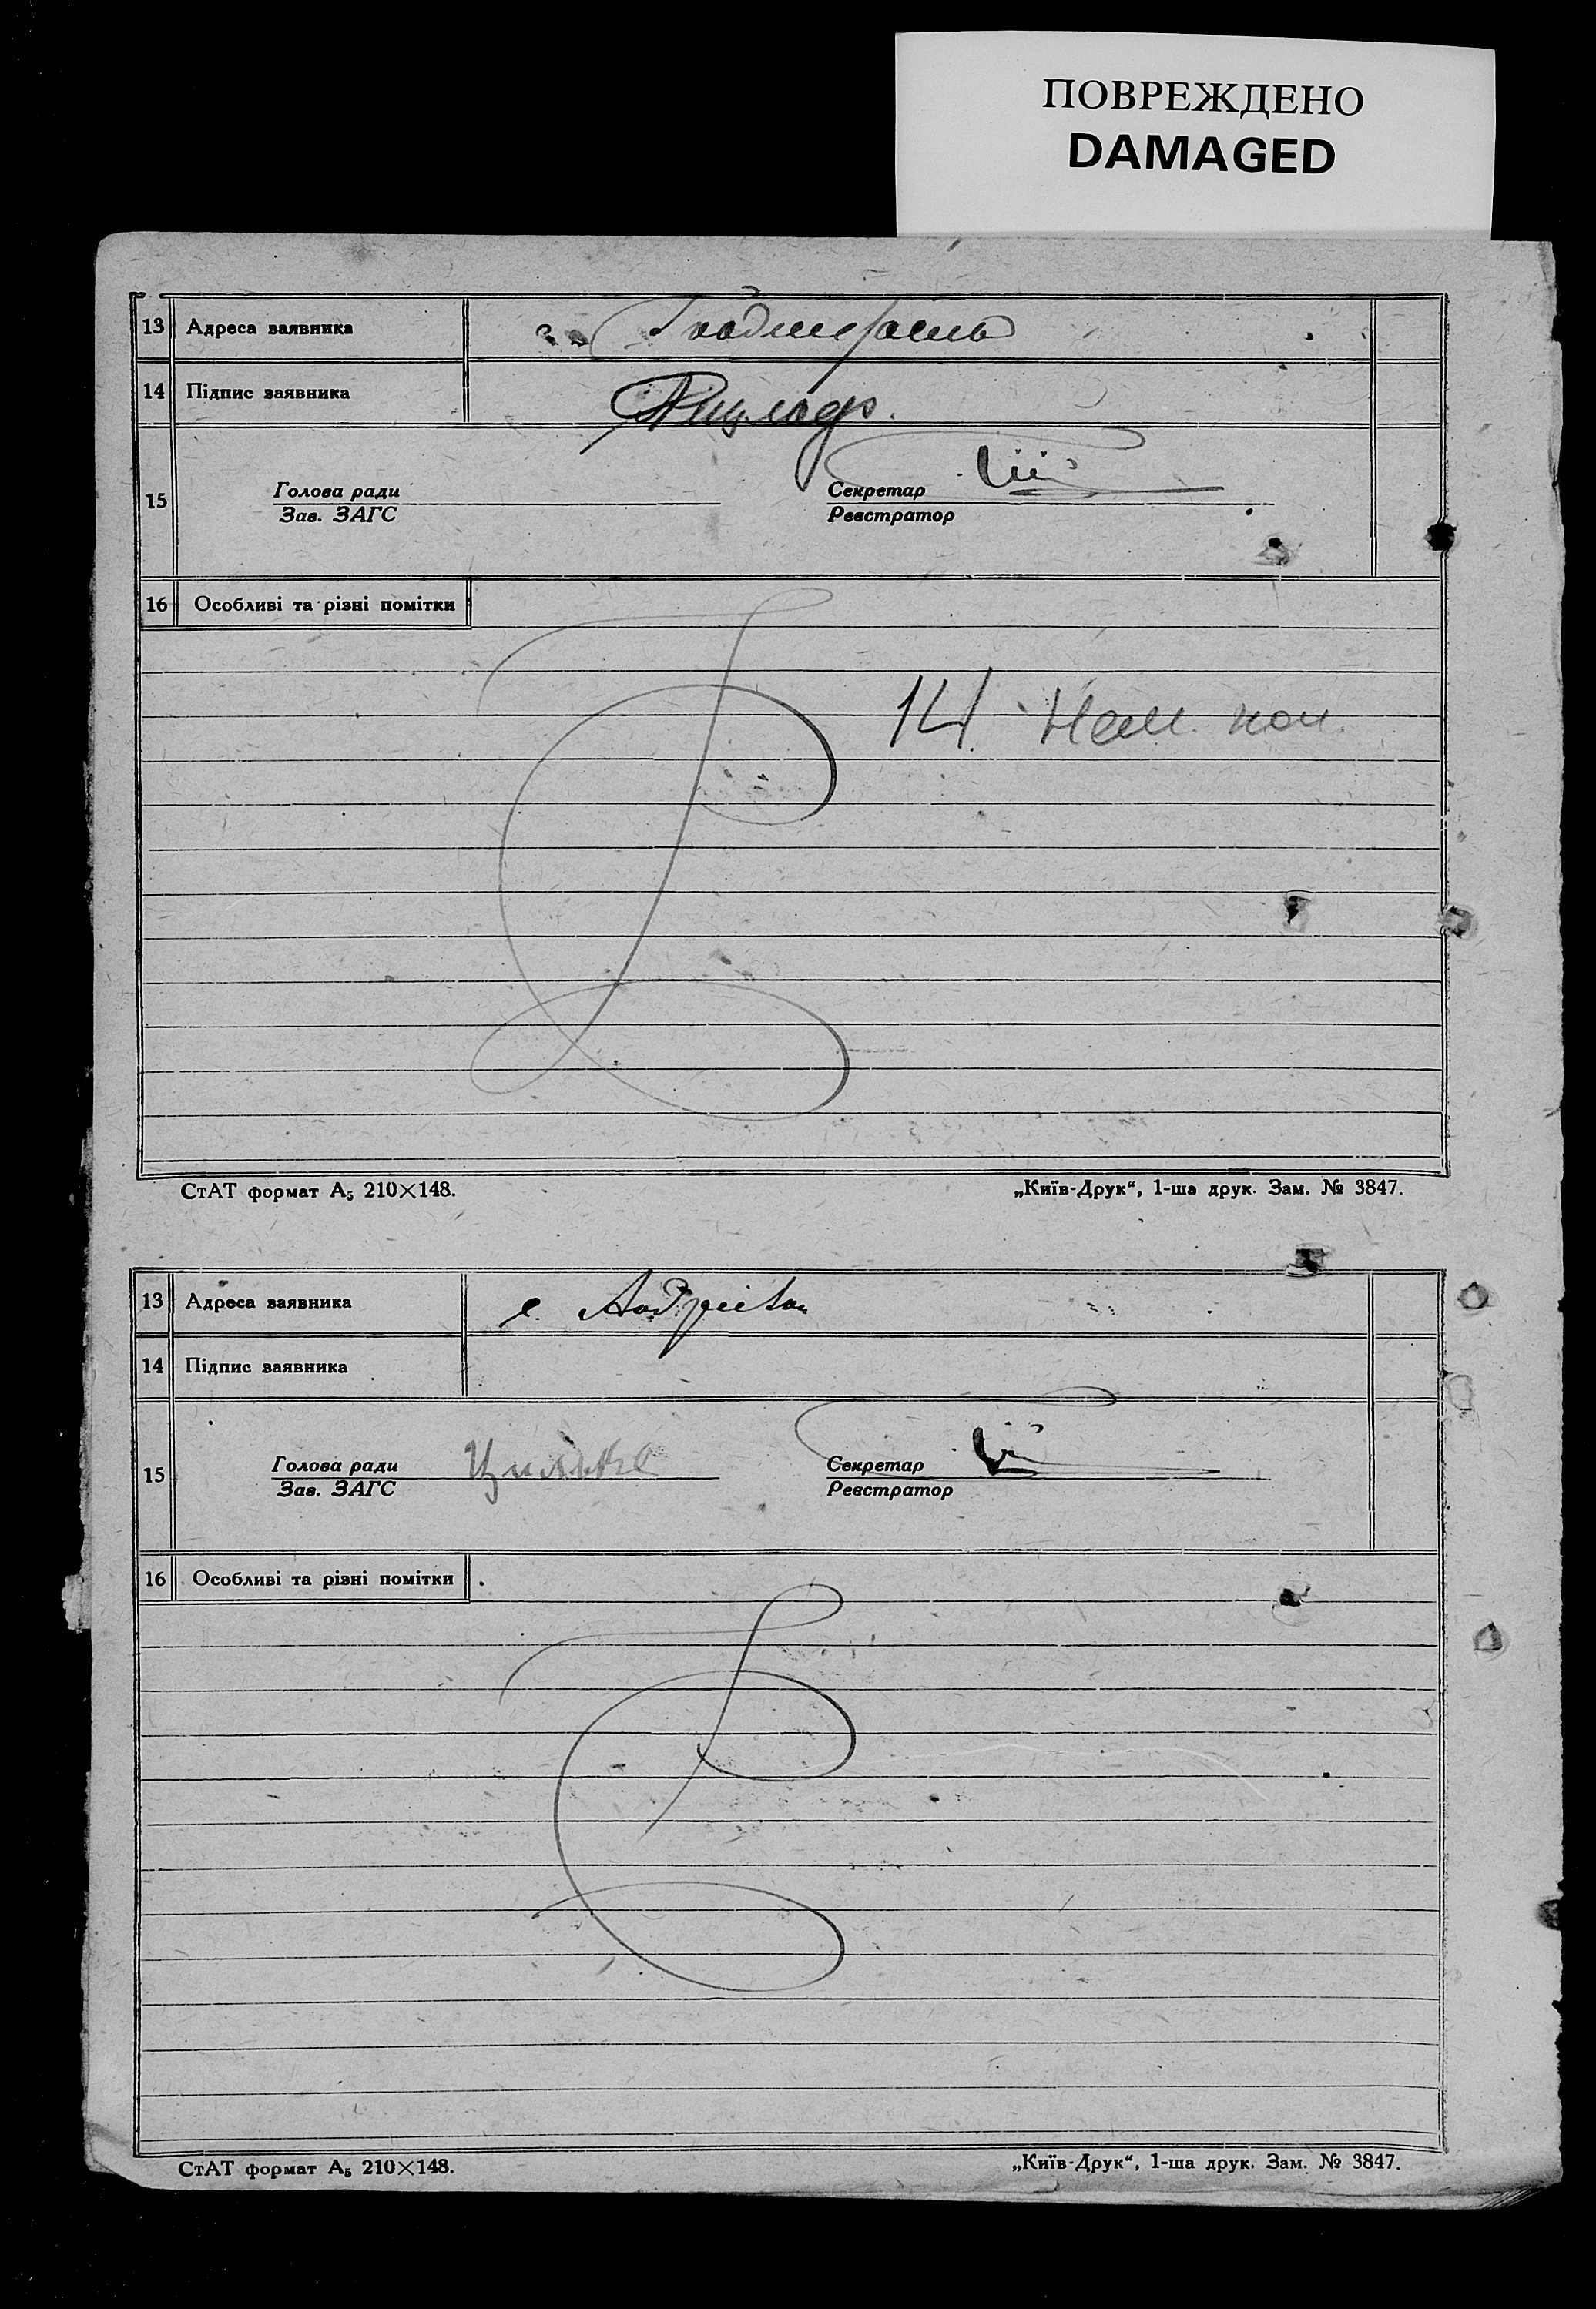 ПОВРЕЖДЕНО
DAMAGED
13 Адреса заявника
14 Підпис заявника
15 Голова ради Секретар
Зав. ЗАГС Реєстратор
16 Особливі та різні помітки
14.
СтАТ формат А₅ 210×148. „Київ-Друк“, 1-ша друк. Зам. № 3847.
13 Адреса заявника с.
14 Підпис заявника
15 Голова ради Секретар
Зав. ЗАГС Реєстратор
16 Особливі та різні помітки
СтАТ формат А₅ 210×148. „Київ-Друк“, 1-ша друк. Зам. № 3847.